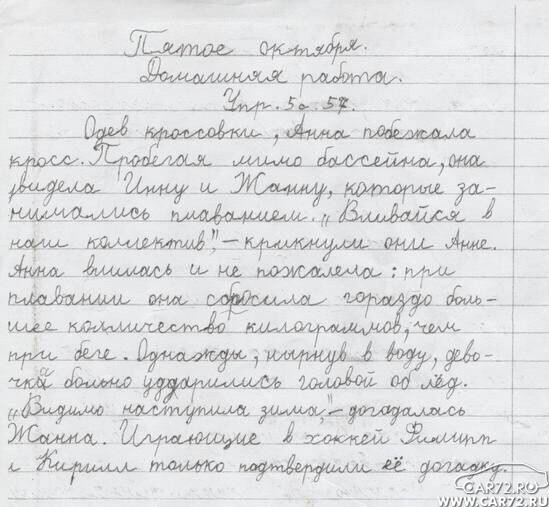 Пятое октября.
Домашняя работа.
Упр. 5 с. 57.
Одев кроссовки, Анна побежала
кросс. Пробегая мимо бассейна, она
увидела Инну и Жанну, которые за-
нимались плаванием. „Вливайся в
наш коллектив", – крикнули они Анне.
Анна влилась и не пожалела: при
плавании она сбросила гораздо боль-
шее колличество килограммов, чем
при беге. Однажды, нырнув в воду, дево-
чки больно ударились головой об лёд.
„Видимо наступила зима", – догадалась
Жанна. Играющие в хоккей Филипп
и Кирилл только подтвердили её догадку.
CAR72.RU
WWW.CAR72.RU